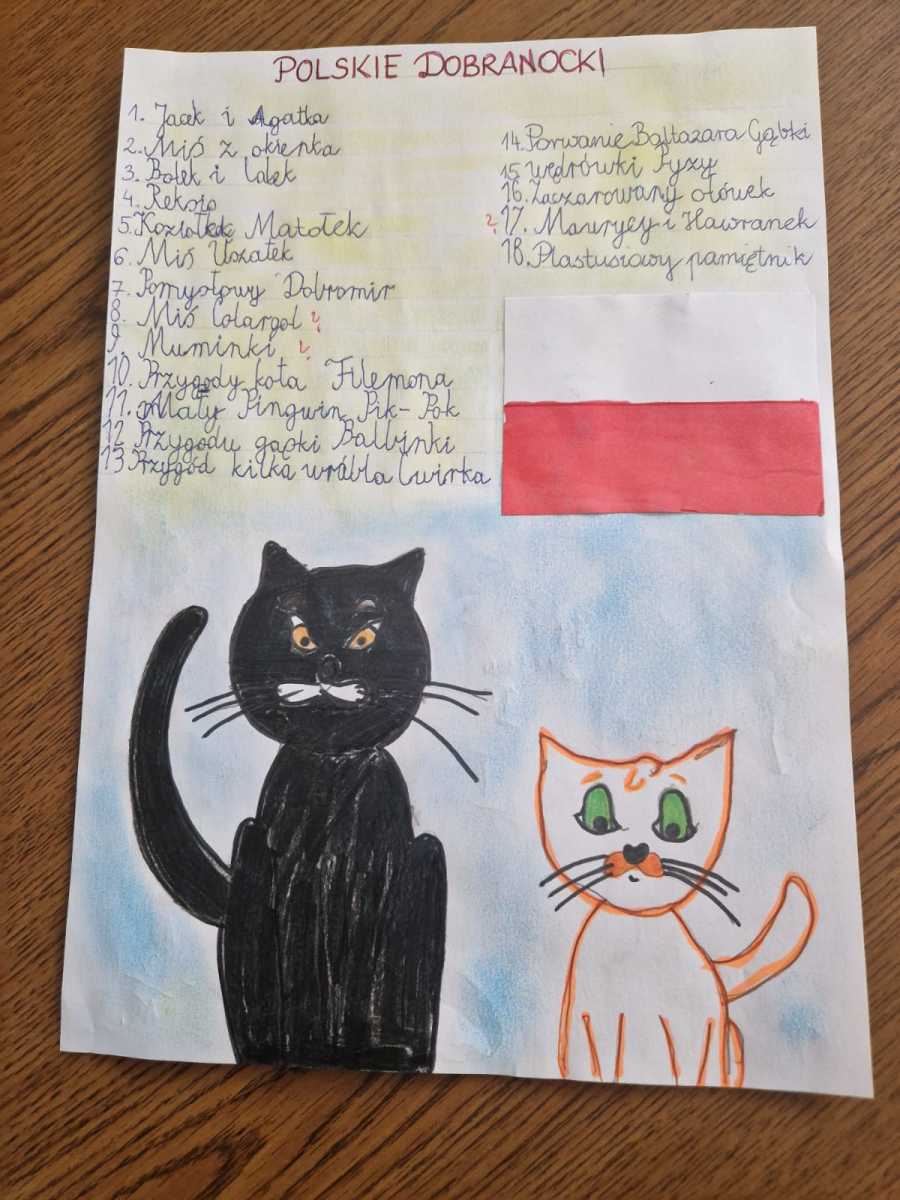 POLSKIE DOBRANOCKI
1. Jacek i Agatka
2. Miś z okienka
3. Bolek i Lolek
4. Reksio
5. Koziołek Matołek
6. Miś Uszatek
7. Pomysłowy Dobromir
8. Miś Colargol ?
9. Muminki ?
10. Przygody kota Filemona
11. Mały Pingwin Pik-Pok
12 Przygody gąski Balbinki
13 Przygód kilka wróbla Ćwirka
14. Porwanie Baltazara Gąbki
15 Wędrówki Pyzy
16. Zaczarowany ołówek
? 17. Maurycy i Hawranek
18. Plastusiowy pamiętnik